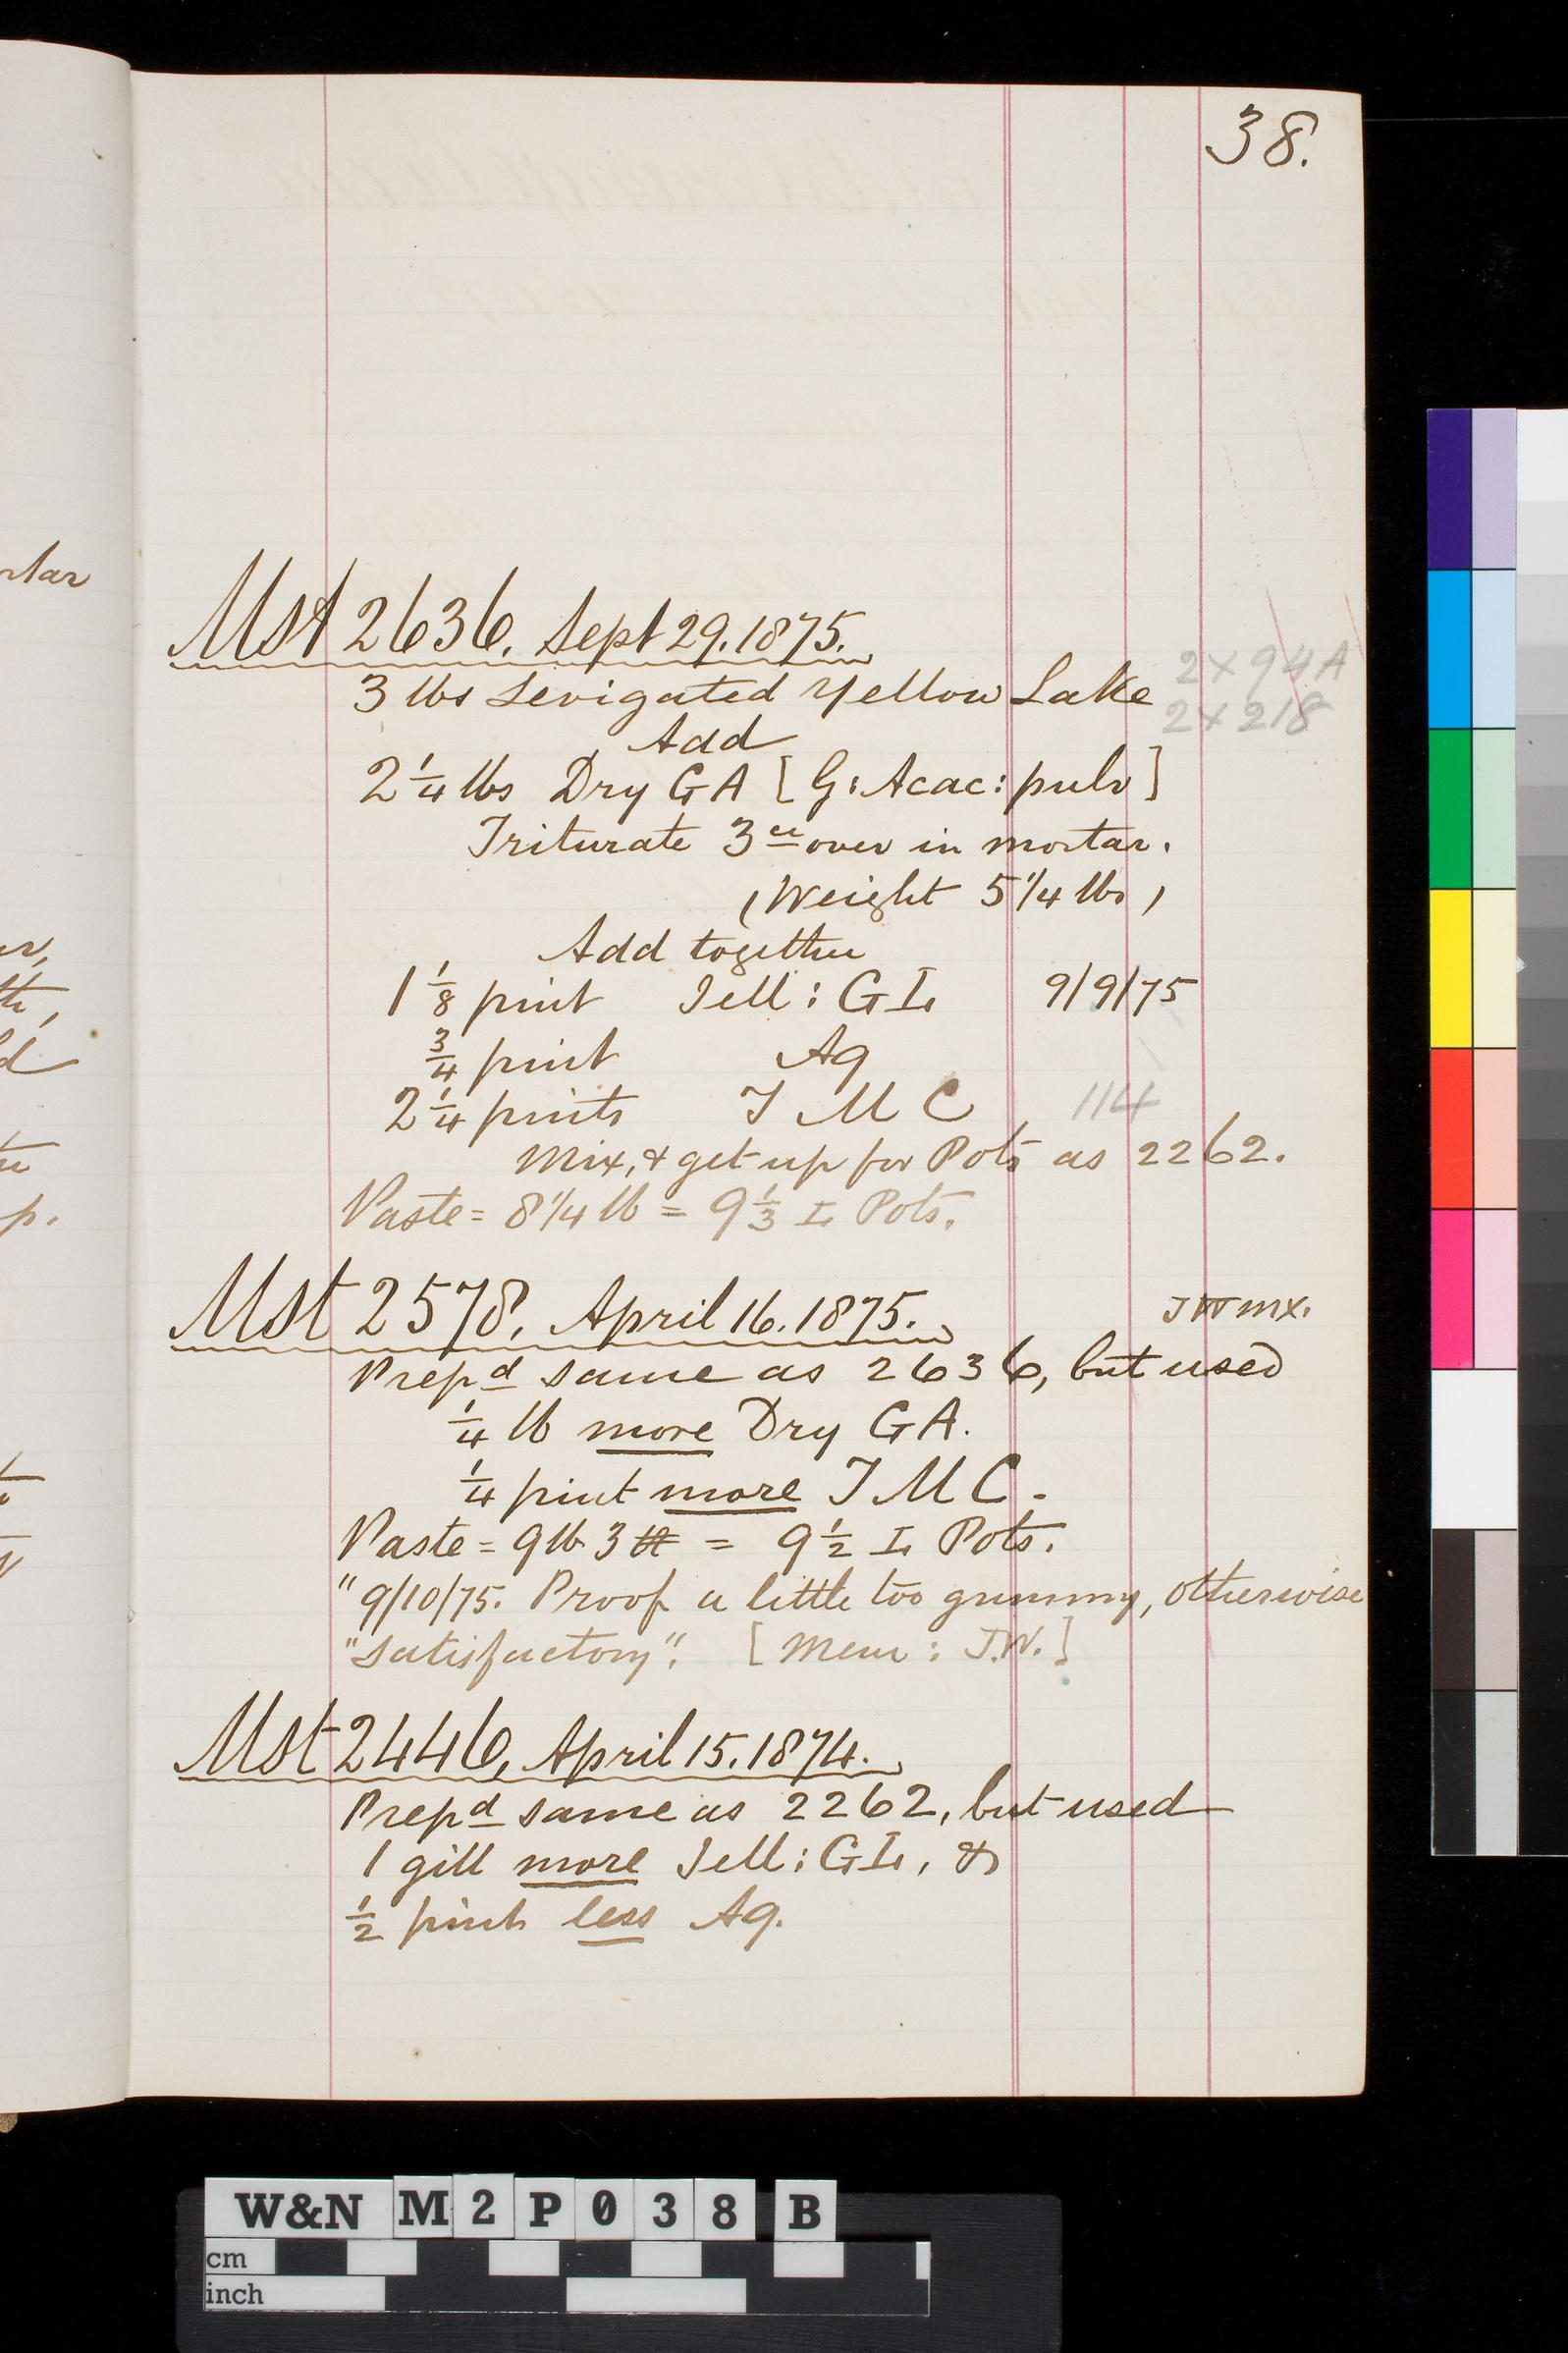 38.
Mst 2636. Sept 29. 1875.
3 lbs Levigated Yellow Lake 2 x 94A
2 x 218
Add
2 1/4 lbs Dry GA [G: Acac: pulv]
Triturate 3ce over in mortar.
(Weight 5 1/4 lbs)
Add together
1 1/8 pint Jell: GL 9/9/75
3/4 pint Aq
2 1/4 pints T M C 114
Mix, & get up for Pots as 2262.
Paste = 8 1/4 lb = 9 1/3 L Pots.
Mst 2578. April 16. 1875.
Prepd same as 2636, but used
1/4 lb more Dry GA.
1/4 pint more T M C.
Paste = 9 lb 3 = 9 1/2 L Pots.
"9/10/75. Proof a little too gummy, otherwise
"satisfactory". [Mem: J.W.]
Mst 2446. April 15. 1874.
Prepd same as 2262, but used
1 gill more Jell: GL, &
1/2 pint less Aq.
W&N M2P038 B
cm
inch